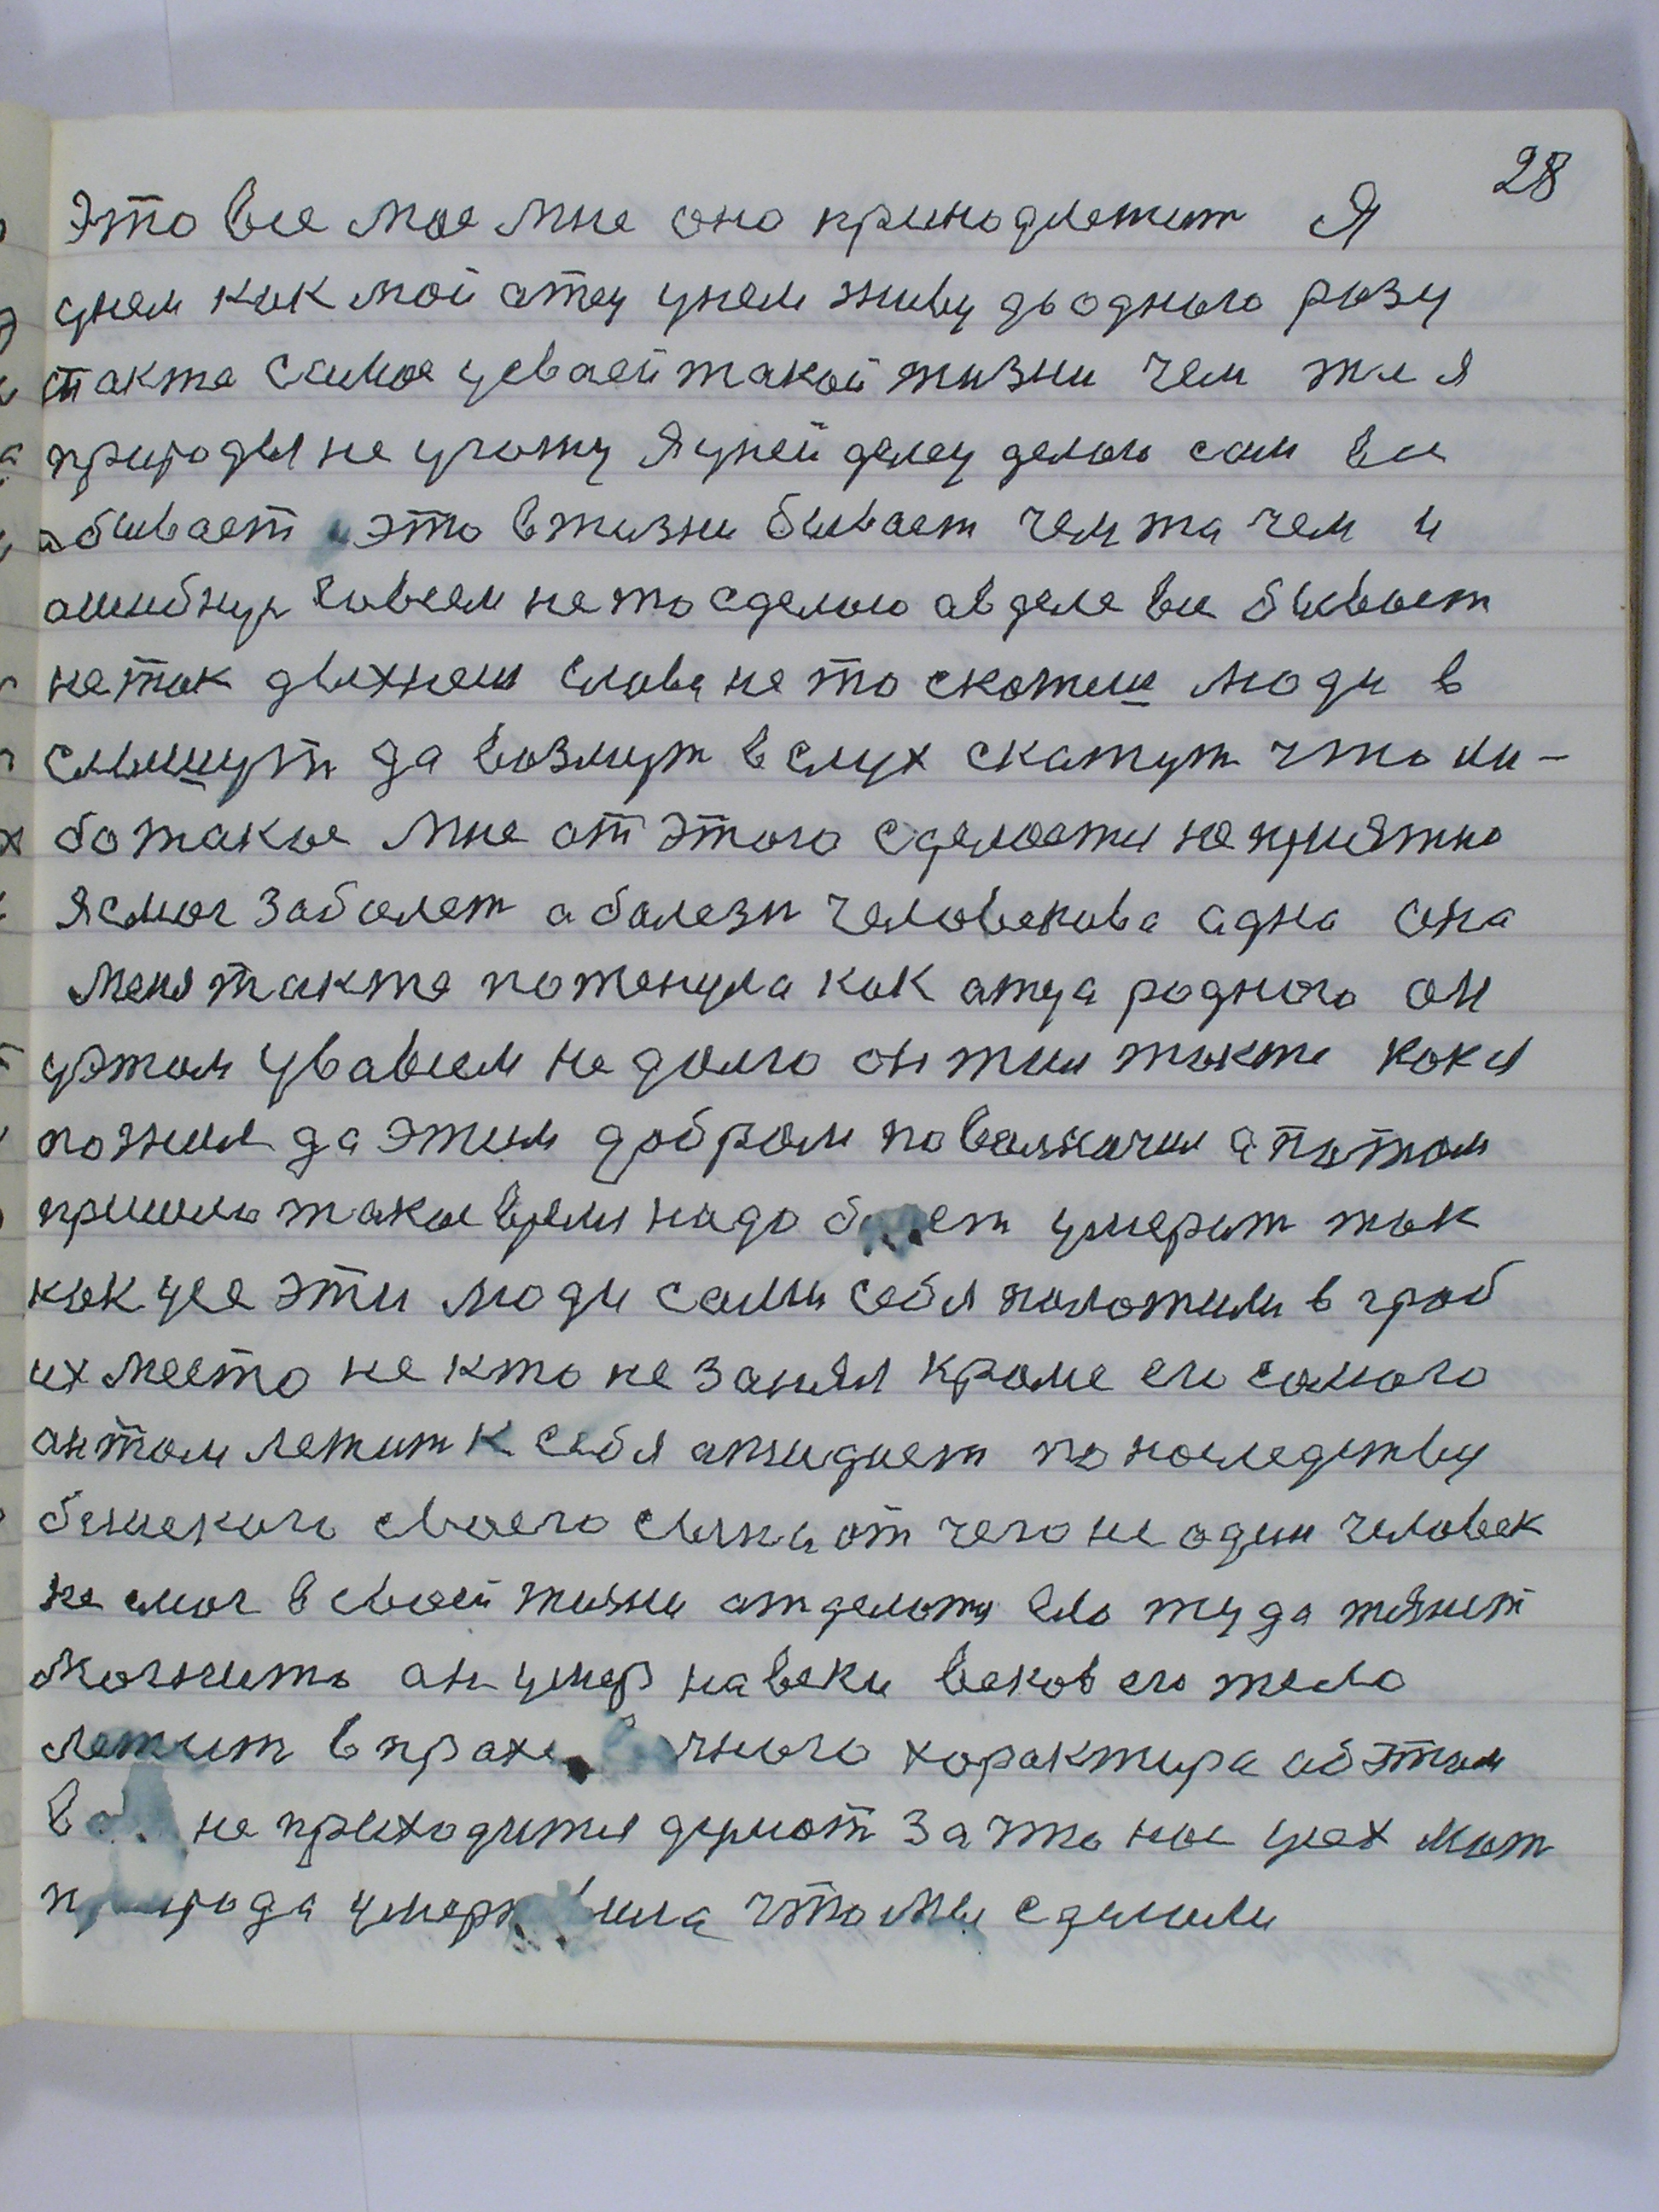 28
Это все мое мне оно приподлежит Я
унем как мой отец унем живу до одного разу
также самое усваей такой жизни чем же я
природы не угожу Я уней делец делаю сам все
абивает и это в жизни бывает чем та чем и
ошибнус совсем не то сделаю а в деле все бывает
не так двихнеш слова не то скажеш люди в
слышут да возмут в слух скажут что ни-
бо такое мне от этого сделается не приятно
я смог заболет а болезн человекова адна она
меня также потенула как атца родного он
уэтом увавсем не долго он жил также как я
пожил да этим добром поволначил а потом
пришло такое время надо будет умерит так
как усе эти люди сами себя положили в гроб
их место не кто не занял кроме его самого
он там лежит к себя апжидает по последству
близкаго своего сына от чего не один человек
не смог в своей жизни отделатя его туда тянит
могжить он умер на веки веков его тело
лежит в прахе вечного характира об этом
не приходится думат за что нас усех мат
природа умертвила что мы сделали